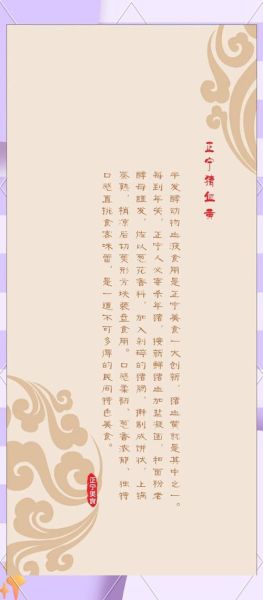 正宁猪血黄
平发酵动物血液食用是正宁美食一大创新，猪血黄就是其中之一。
每到年关，正宁人必宰杀年猪，接新鲜猪血加盐凝固，和面粉老
酵母醒发，佐以葱花香料，加入剁碎的猪脂，擀制成饼状，上锅
蒸熟，稍凉后切菱形方块装盘食用。口感柔韧、葱香浓郁、独特
口感直挑食客味蕾，是一道不可多得的民间特色美食。
正宁美食